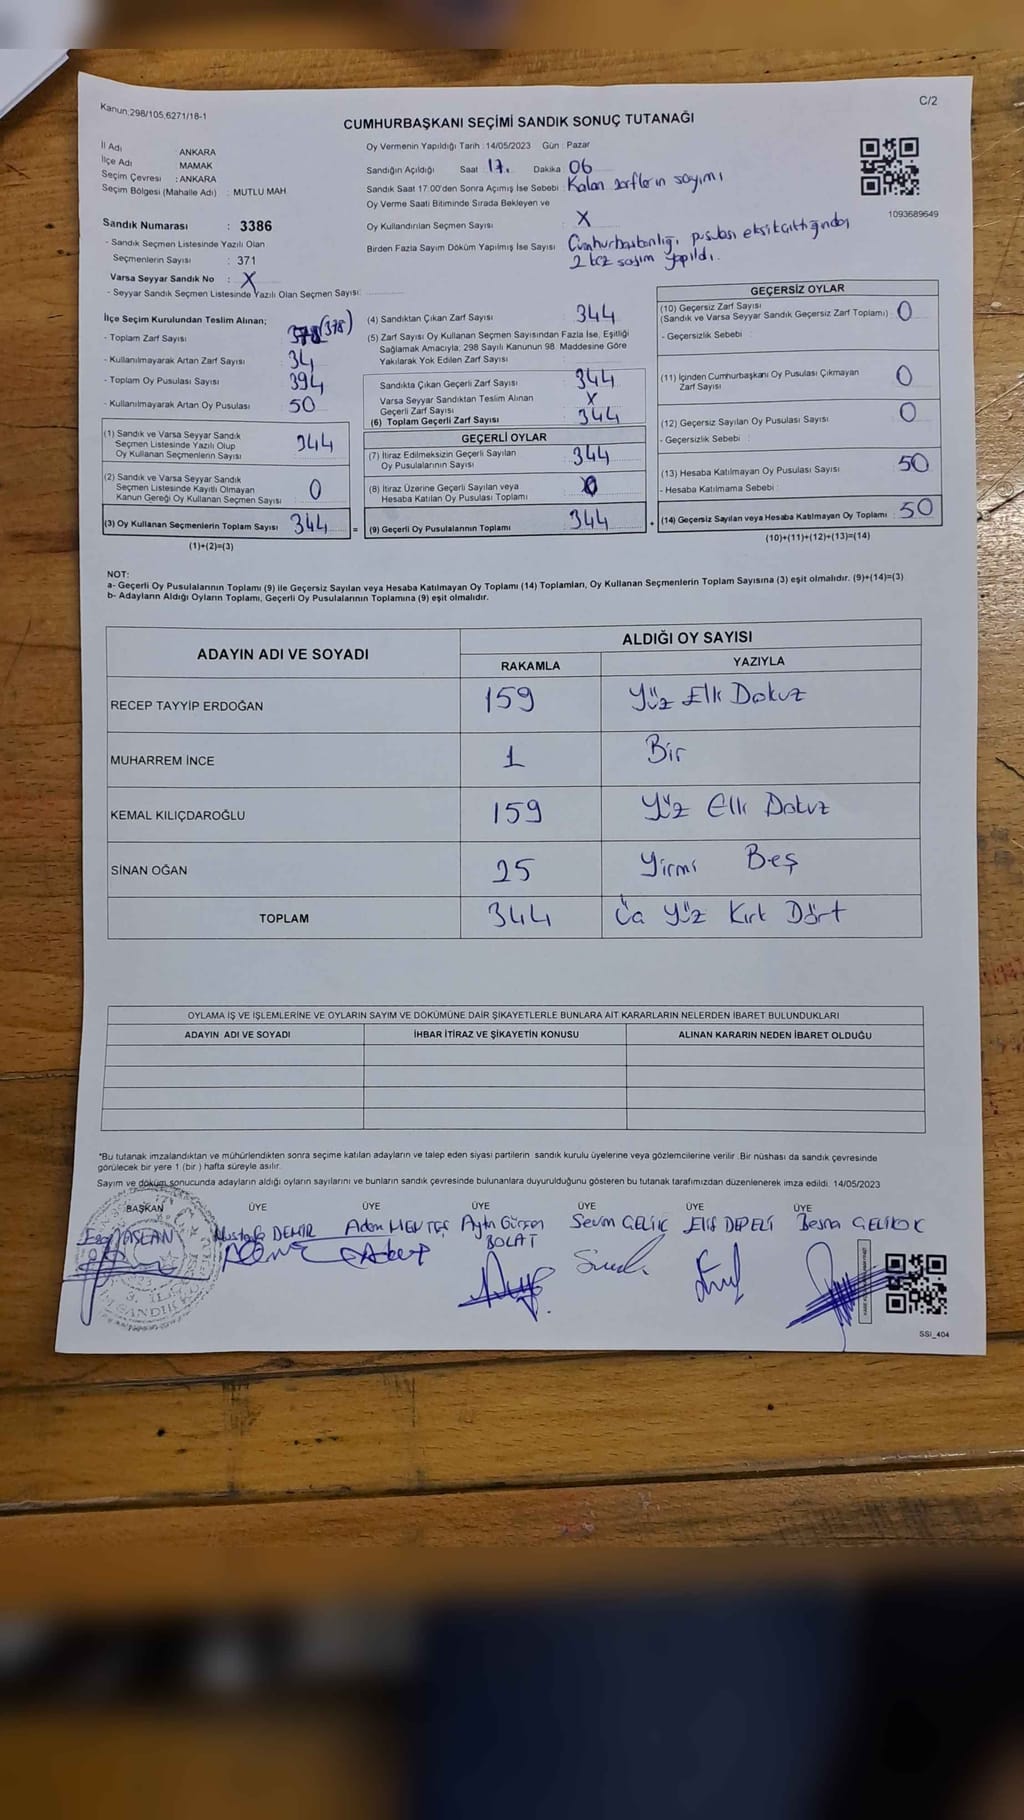 Kanun,298/105,6271/18-1
C/2
CUMHURBAŞKANI SEÇİMİ SANDIK SONUÇ TUTANAĞI
İl Adı : ANKARA
İlçe Adı : MAMAK
Seçim Çevresi : ANKARA
Seçim Bölgesi (Mahalle Adı) : MUTLU MAH
Sandık Numarası : 3386
- Sandık Seçmen Listesinde Yazılı Olan
Seçmenlerin Sayısı : 371
Varsa Seyyar Sandık No : X
- Seyyar Sandık Seçmen Listesinde Yazılı Olan Seçmen Sayısı:
Oy Vermenin Yapıldığı Tarih : 14/05/2023 Gün : Pazar
Sandığın Açıldığı Saat 17. Dakika 06
Sandık Saat 17:00'den Sonra Açımış İse Sebebi : Kalan zarfların sayımı
Oy Verme Saati Bitiminde Sırada Bekleyen ve
Oy Kullandırılan Seçmen Sayısı : X
Birden Fazla Sayım Döküm Yapılmış İse Sayısı : Cumhurbaşkanlığı pusulası eksik çıktığından
2 kez sayım yapıldı.
1093689649
İlçe Seçim Kurulundan Teslim Alınan;
- Toplam Zarf Sayısı : 378 (378)
- Kullanılmayarak Artan Zarf Sayısı : 34
- Toplam Oy Pusulası Sayısı : 394
- Kullanılmayarak Artan Oy Pusulası : 50
(1) Sandık ve Varsa Seyyar Sandık
Seçmen Listesinde Yazılı Olup
Oy Kullanan Seçmenlerin Sayısı : 344
(2) Sandık ve Varsa Seyyar Sandık
Seçmen Listesinde Kayıtlı Olmayan
Kanun Gereği Oy Kullanan Seçmen Sayısı : 0
(3) Oy Kullanan Seçmenlerin Toplam Sayısı : 344
(1)+(2)=(3)
(4) Sandıktan Çıkan Zarf Sayısı : 344
(5) Zarf Sayısı Oy Kullanan Seçmen Sayısından Fazla İse, Eşitliği
Sağlamak Amacıyla; 298 Sayılı Kanunun 98. Maddesine Göre
Yakılarak Yok Edilen Zarf Sayısı :
Sandıkta Çıkan Geçerli Zarf Sayısı : 344
Varsa Seyyar Sandıktan Teslim Alınan
Geçerli Zarf Sayısı : X
(6) Toplam Geçerli Zarf Sayısı : 344
GEÇERLİ OYLAR
(7) İtiraz Edilmeksizin Geçerli Sayılan
Oy Pusulalarının Sayısı : 344
(8) İtiraz Üzerine Geçerli Sayılan veya
Hesaba Katılan Oy Pusulası Toplamı : 0
= (9) Geçerli Oy Pusulalarının Toplamı : 344 +
GEÇERSİZ OYLAR
(10) Geçersiz Zarf Sayısı
(Sandık ve Varsa Seyyar Sandık Geçersiz Zarf Toplamı) : 0
- Geçersizlik Sebebi :
(11) İçinden Cumhurbaşkanı Oy Pusulası Çıkmayan
Zarf Sayısı : 0
(12) Geçersiz Sayılan Oy Pusulası Sayısı : 0
- Geçersizlik Sebebi :
(13) Hesaba Katılmayan Oy Pusulası Sayısı : 50
- Hesaba Katılmama Sebebi :
(14) Geçersiz Sayılan veya Hesaba Katılmayan Oy Toplamı : 50
(10)+(11)+(12)+(13)=(14)
NOT:
a- Geçerli Oy Pusulalarının Toplamı (9) ile Geçersiz Sayılan veya Hesaba Katılmayan Oy Toplamı (14) Toplamları, Oy Kullanan Seçmenlerin Toplam Sayısına (3) eşit olmalıdır. (9)+(14)=(3)
b- Adayların Aldığı Oyların Toplamı, Geçerli Oy Pusulalarının Toplamına (9) eşit olmalıdır.
ADAYIN ADI VE SOYADI
ALDIĞI OY SAYISI
RAKAMLA YAZIYLA
RECEP TAYYİP ERDOĞAN 159 Yüz Elli Dokuz
MUHARREM İNCE 1 Bir
KEMAL KILIÇDAROĞLU 159 Yüz Elli Dokuz
SİNAN OĞAN 25 Yirmi Beş
TOPLAM 344 Üç Yüz Kırk Dört
OYLAMA İŞ VE İŞLEMLERİNE VE OYLARIN SAYIM VE DÖKÜMÜNE DAİR ŞİKAYETLERLE BUNLARA AİT KARARLARIN NELERDEN İBARET BULUNDUKLARI
ADAYIN ADI VE SOYADI İHBAR İTİRAZ VE ŞİKAYETİN KONUSU ALINAN KARARIN NEDEN İBARET OLDUĞU
*Bu tutanak imzalandıktan ve mühürlendikten sonra seçime katılan adayların ve talep eden siyasi partilerin sandık kurulu üyelerine veya gözlemcilerine verilir. Bir nüshası da sandık çevresinde
görülecek bir yere 1 (bir ) hafta süreyle asılır.
Sayım ve döküm sonucunda adayların aldığı oyların sayılarını ve bunların sandık çevresinde bulunanlara duyurulduğunu gösteren bu tutanak tarafımızdan düzenlenerek imza edildi. 14/05/2023
BAŞKAN ÜYE ÜYE ÜYE ÜYE ÜYE ÜYE
ASLAN Mustafa DEMİR Adem MENTEŞ Aytn Gürsen BOLAT Sevim ÇELİK Elif DEPELİ Besna GELİKOK
SSİ_404